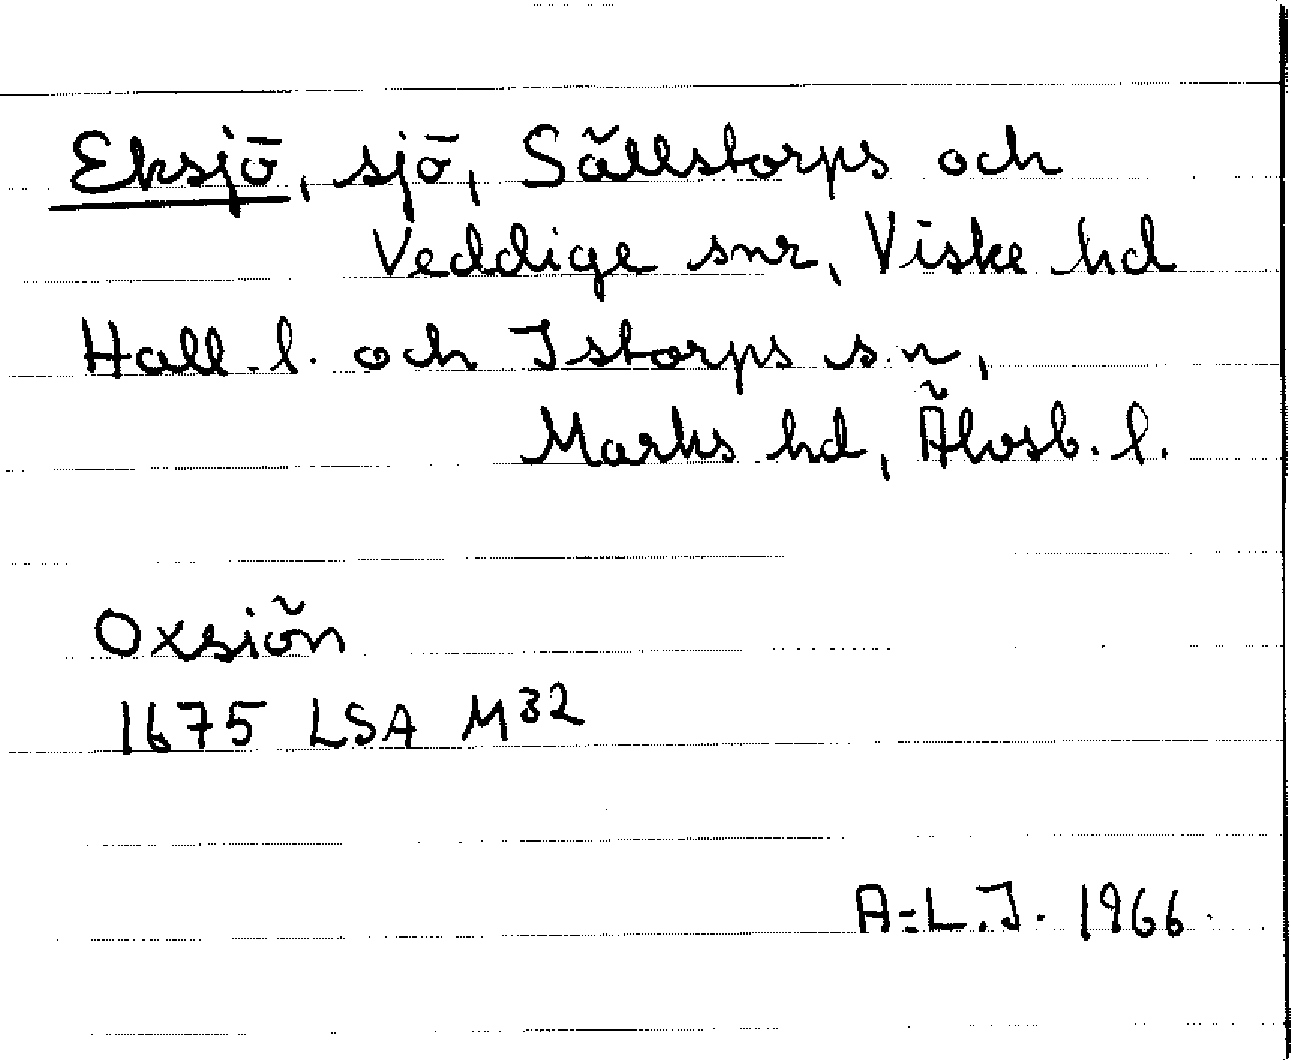 Eksjö, sjö, Sällstorps och
Veddige snr, Viske hd
Hall. l. och Istorps sn,
Marks hd, Älvsb. l.
Oxsiön
1675 LSA M32
A-L.J. 1966.